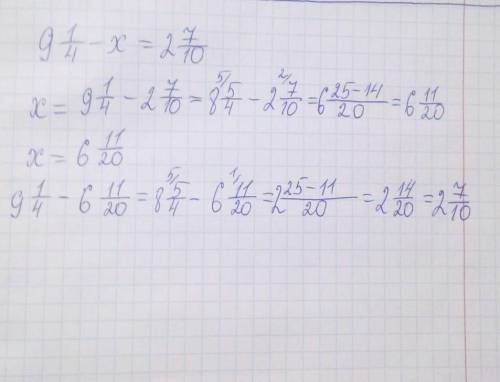 9 1/4 - x = 2 7/10
x = 9 1/4 - 2 7/10 = 8 5/4 (5/) - 2 7/10 (2/) = 6 (25-14)/20 = 6 11/20
x = 6 11/20
9 1/4 - 6 11/20 = 8 5/4 (5/) - 6 11/20 (1/) = 2 (25-11)/20 = 2 14/20 = 2 7/10